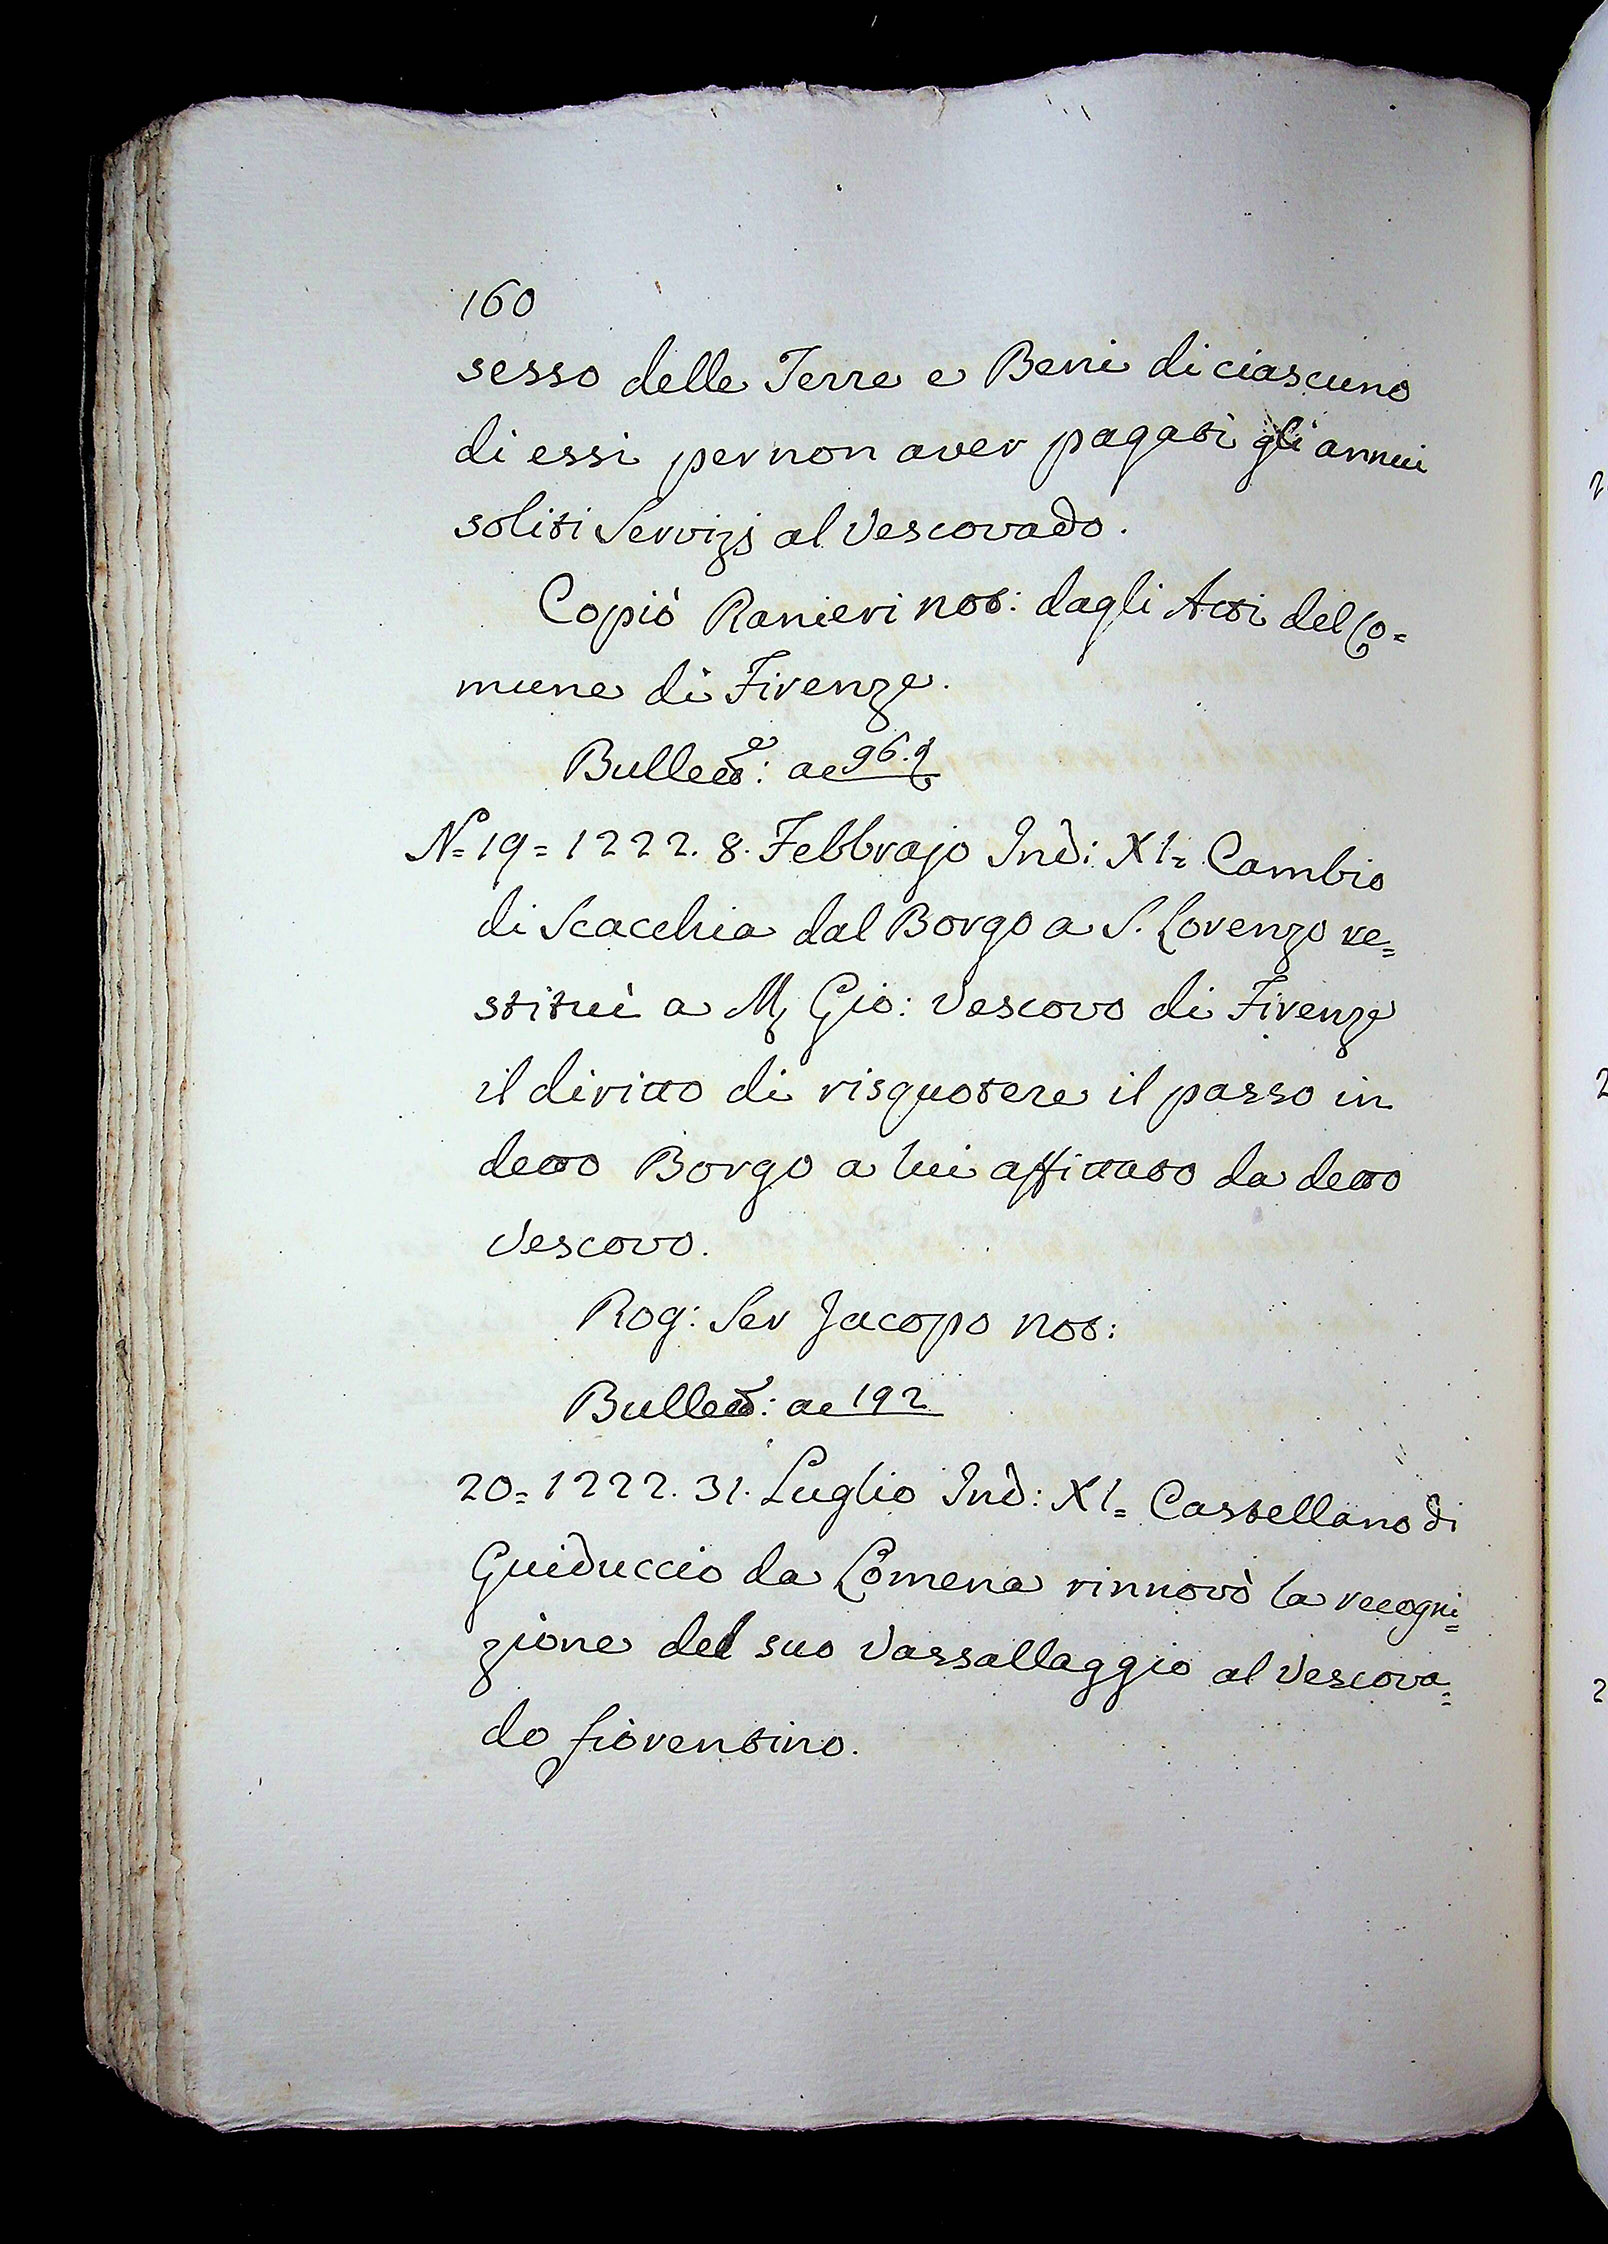 160
sesso delle Terre e Beni di ciascuno
di essi per non aver pagati gli annui
soliti Servizj al Vescovado.
Copiò Ranieri not: dagli Atti del Co=
mune di Firenze.
Bullett: a c 96.
N. 19 = 1222. 8. Febbrajo Ind: XI = Cambio
di Scacchia dal Borgo a S. Lorenzo re=
stituì a M. Gio: Vescovo di Firenze
il diritto di risquotere il passo in
detto Borgo a lui affittato da detto
Vescovo.
Rog: Ser Jacopo not:
Bullett: a c 192
20 = 1222. 31. Luglio Ind: XI = Castellano di
Guiduccio da Lomena rinnovò la recogni=
zione del suo Vassallaggio al Vescova=
do fiorentino.